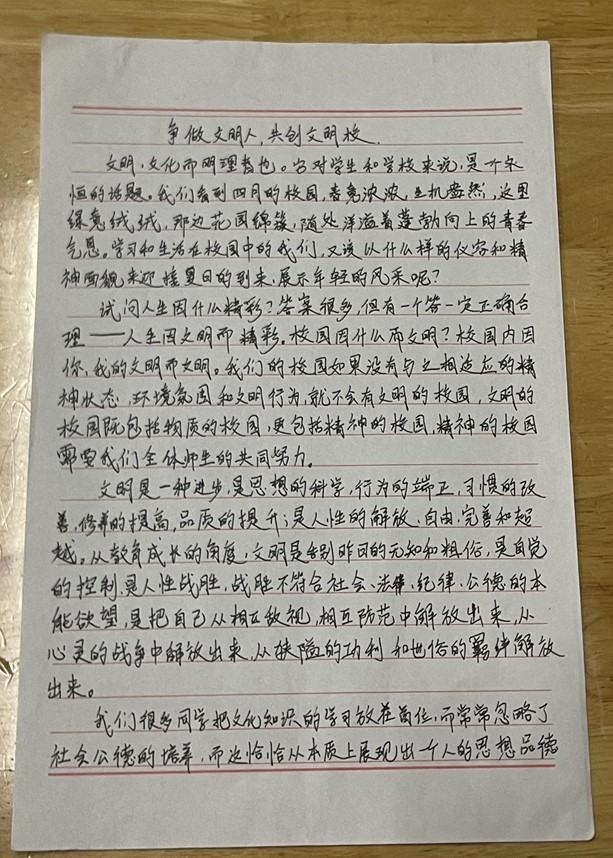 争做文明人,共创文明校.
文明,文化而明理者也。它对学生和学校来说,是一个永
恒的话题。我们看到四月的校园,春意浓浓,生机盎然,这里
绿意绒绒,那边花团锦簇,随处洋溢着蓬勃向上的青春
气息。学习和生活在校园中的我们,又该以什么样的仪容和精
神面貌来迎接夏日的到来,展示年轻的风采呢?
试问人生因什么精彩?答案很多,但有一个答一定正确合
理——人生因文明而精彩。校园因什么而文明?校园内因
你、我的文明而文明。我们的校园如果没有与之相适应的精
神状态、环境氛围和文明行为,就不会有文明的校园,文明的
校园既包括物质的校园,更包括精神的校园,精神的校园
需要我们全体师生的共同努力。
文明是一种进步,是思想的科学,行为的端正,习惯的改
善,修养的提高,品质的提升;是人性的解放、自由、完善和超
越。从教育成长的角度,文明是告别昨日的无知和粗俗,是自觉
的控制,是人性战胜,战胜不符合社会、法律、纪律、公德的本
能欲望,是把自己从相互敌视,相互防范中解放出来,从
心灵的战争中解放出来,从狭隘的功利和世俗的羁绊解放
出来。
我们很多同学把文化知识的学习放在首位,而常常忽略了
社会公德的培养,而这恰恰从本质上展现出一个人的思想品德